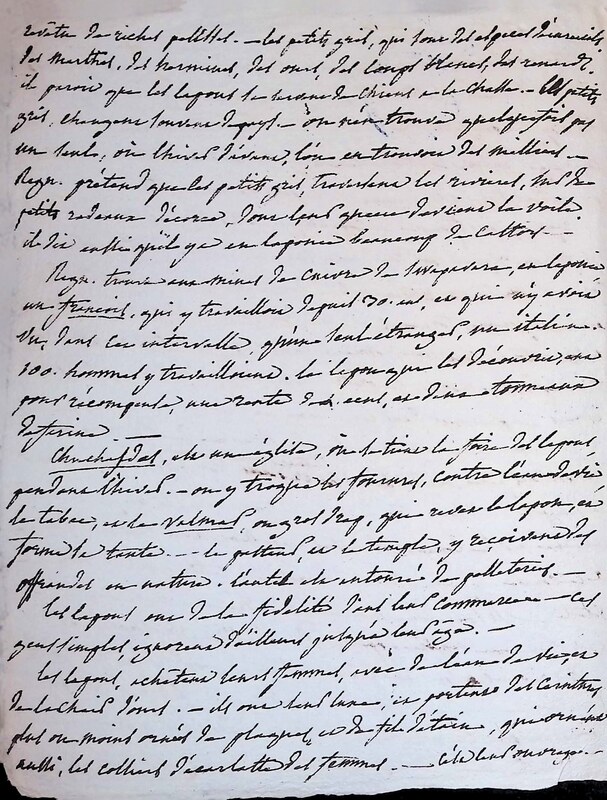 revetu de riches pelletes. — les petits gris, qui sont des especes d'écureuils
des marthes, des hermines, des ours, des loups blancs, des renards.
il paroit que les lapons se servent de chiens a la chasse. — les petits
gris, changent souvent de pays. — on n'en trouve quelquefois pas
un seul, où l'hiver d'avant, l'on en trouvoit des milliers. —
Regn. prétend que les petits gris, traversent les rivieres, sur de
petits radeaux d'écorce, dont leur queue devient la voile
il dit aussi qu'il y a en laponie beaucoup de castors. —
Regn. trouva aux mines de cuivre de swapavara, en laponie
un françois, qui y travailloit depuis 30. ans, et qui n'y avoit
vu, dans cet intervalle qu'un seul étranger, un italien.
100. hommes y travailloient. le lapon qui les découvrit, eut
pour récompense, une rente de 4. ecus, et deux tonneaux
de farine. —
Chucasdes, est une église, où se tient la foire des lapons
pendant l'hiver. — on y troque les fourures, contre l'eau de vie
le tabac, et le valmar, ou gros drap, qui revet le lapon, et
forme sa tente. — le pasteur, et le temple, y recoivent des
offrandes en nature. l'autel est entouré de pelleteries. —
les lapons ont de la fidelité dans leur commerce — ces
gens simples, ignorent d'ailleurs jusqu'à leur âge. —
les lapons, achetent leurs femmes, avec de l'eau de vie, et
de la chair d'ours. — ils ont leur luxe; et portent des ceintures
plus ou moins ornées de plaques, et de fil d'étain, qui ornent
aussi, les colliers d'écarlatte des femmes. — c'est leur ouvrage. —